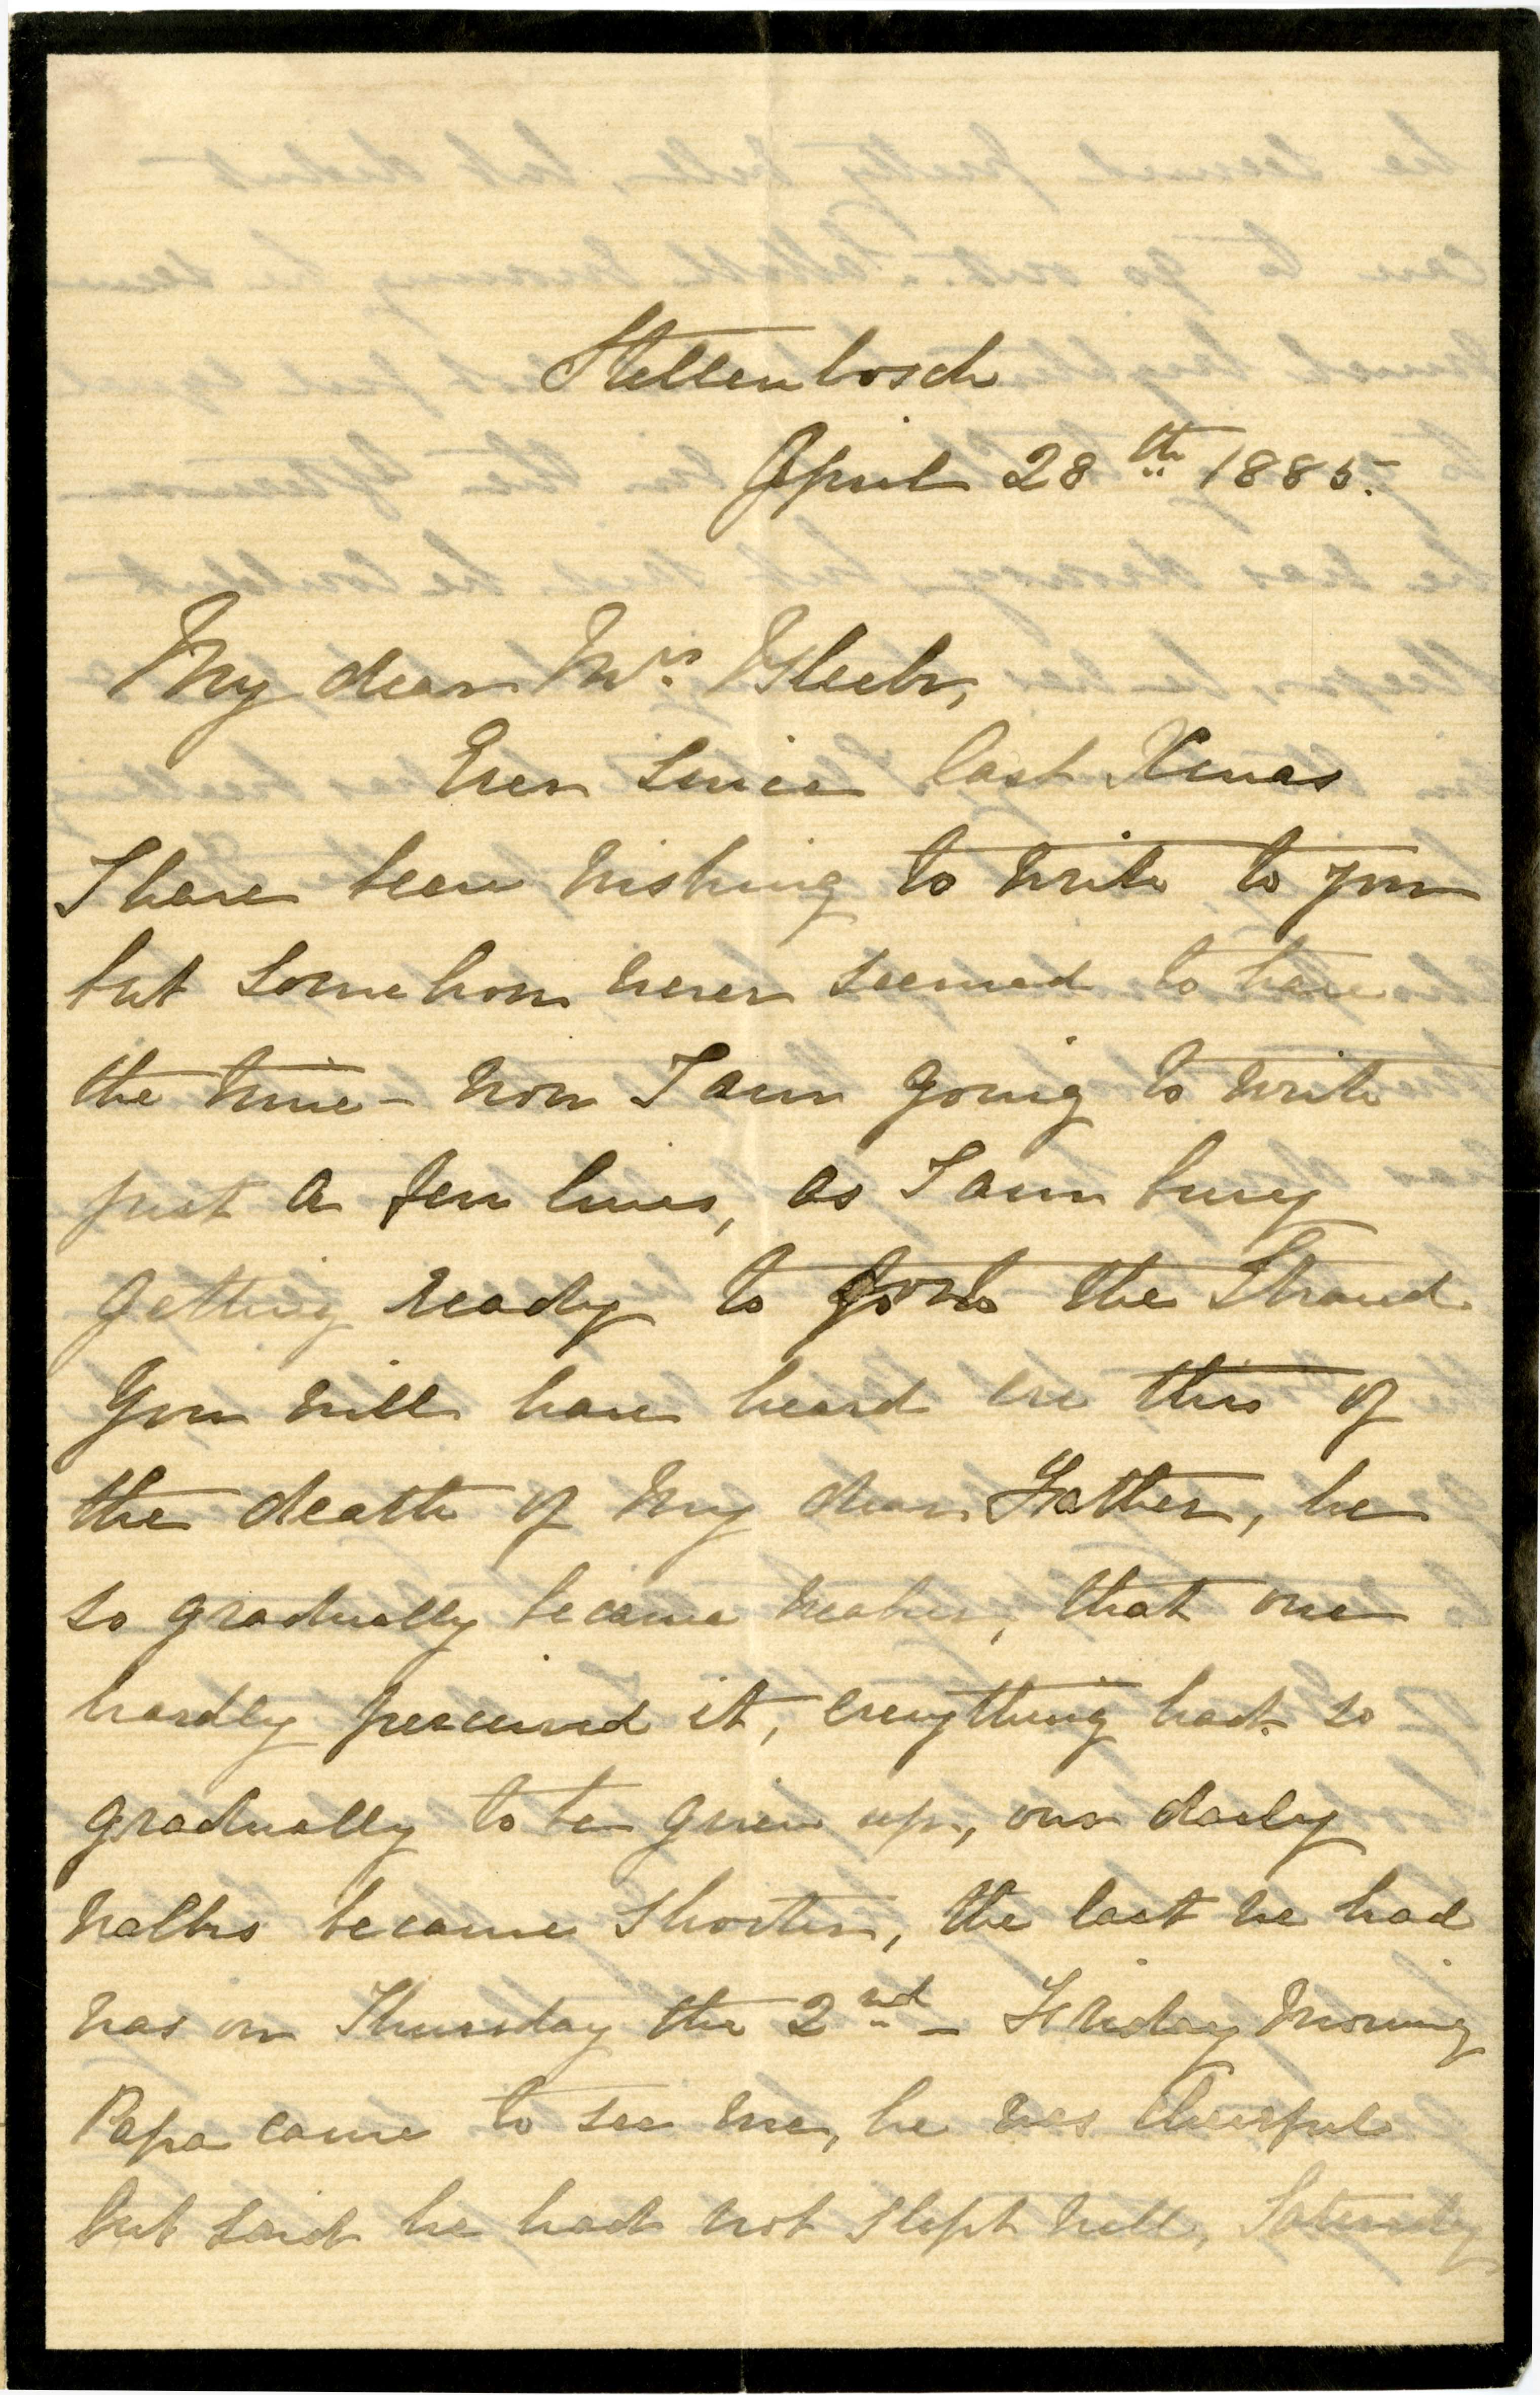 Stellenbosch
April 28th 1885.
My dear Mrs Bleek,
Ever since last Xmas
I have been wishing to write to you
but somehow never seemed to have
the time - now I am going to write
just a few lines, as I am busy
getting ready to go to the Strand.
You will have heard ere this of
the death of my dear Father, he
so gradually became weaker, that one
hardly perceived it, everything had so
gradually to be given up, our daily
walks became shorter, the last we had
was on Thursday the 2nd - Friday morning
Papa came to see me, he was cheerful
but said he had not slept well, Saturday